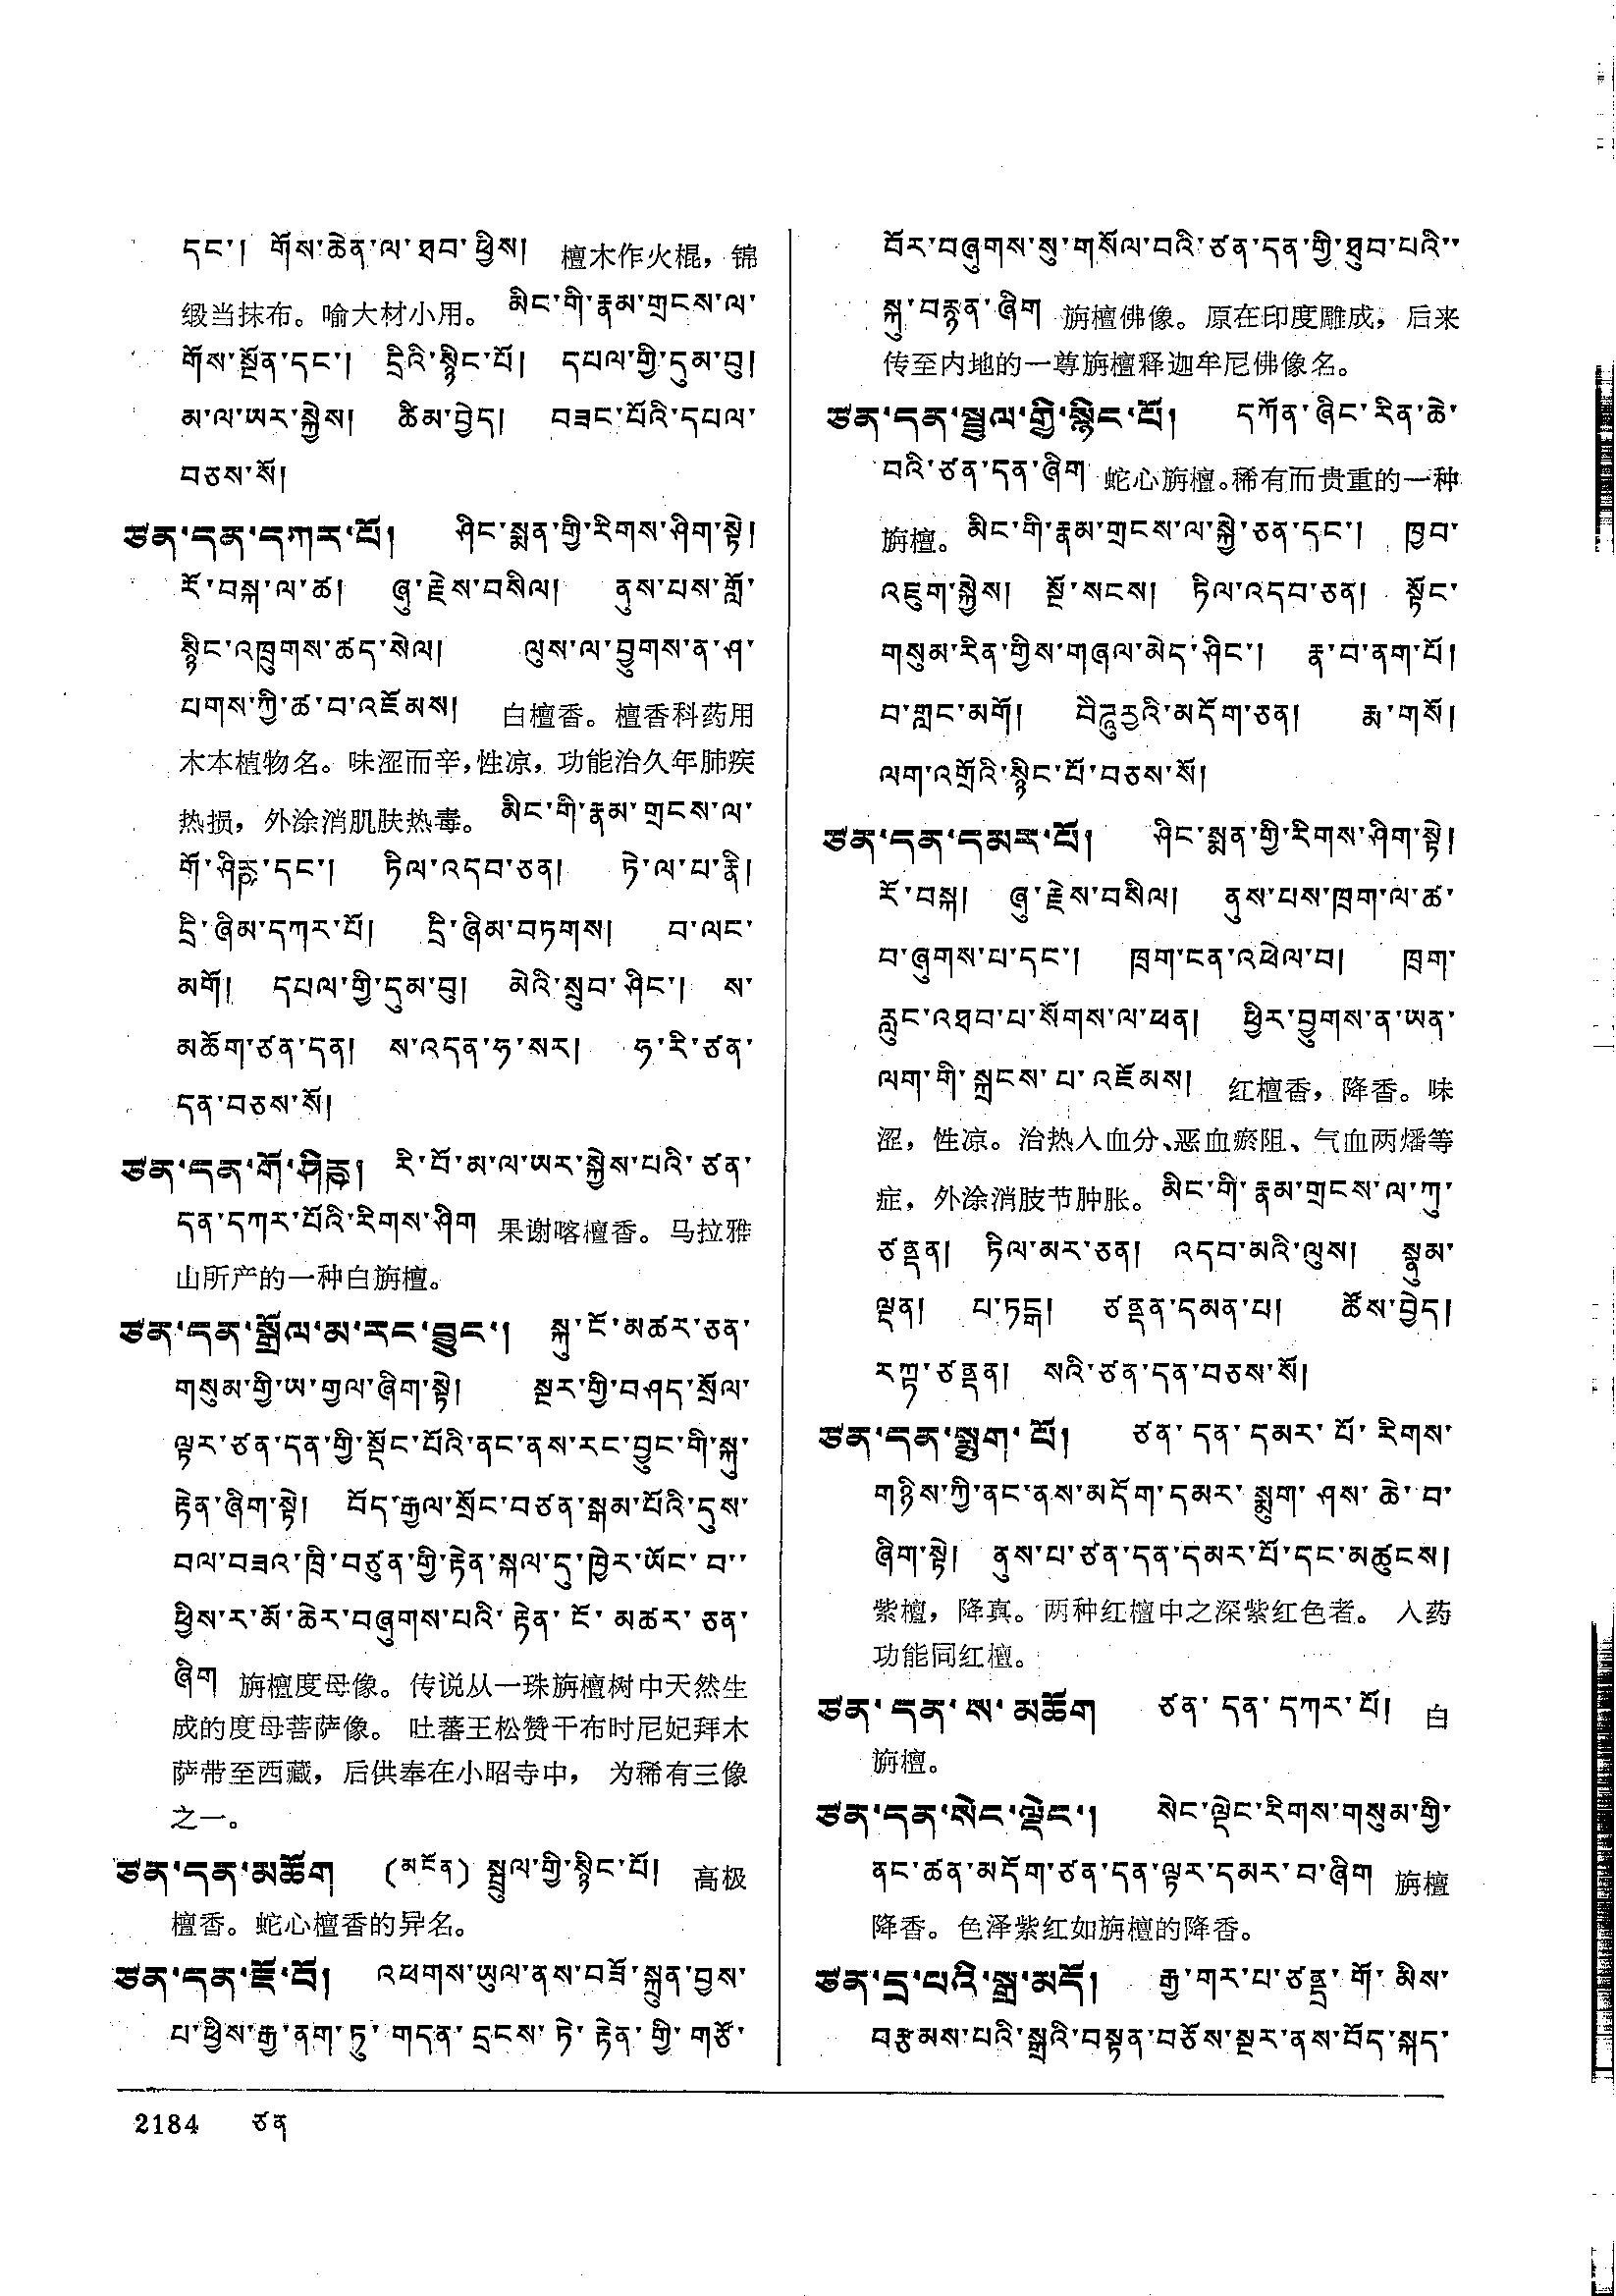 དང་། གོས་ཆེན་ལ་ཐབ་ཕྱིས། 檀木作火棍，锦
缎当抹布。喻大材小用。 མིང་གི་རྣམ་གྲངས་ལ་
གོས་སྔོན་དང་། དྲིའི་སྙིང་པོ། དཔལ་གྱི་དུམ་བུ།
མ་ལ་ཡར་སྐྱེས། ཚིམ་བྱེད། བཟང་པོའི་དཔལ་
བཅས་སོ།
ཙན་དན་དཀར་པོ། ཤིང་སྨན་གྱི་རིགས་ཤིག་སྟེ།
རོ་བསྐ་ལ་ཚ། ཞུ་རྗེས་བསིལ། ནུས་པས་གློ་
སྙིང་འཁྲུགས་ཚད་སེལ། ལུས་ལ་བྱུགས་ན་ཤ་
པགས་ཀྱི་ཚ་བ་འཇོམས། 白檀香。檀香科药用
木本植物名。味涩而辛，性凉，功能治久年肺疾
热损，外涂消肌肤热毒。 མིང་གི་རྣམ་གྲངས་ལ་
གོ་ཤཱིརྵ་དང་། ཏིལ་འདབ་ཅན། ཏེ་ལ་པ་རྣི།
དྲི་ཞིམ་དཀར་པོ། དྲི་ཞིམ་བཏགས། བ་ལང་
མགོ། དཔལ་གྱི་དུམ་བུ། མེའི་སྲུབ་ཤིང་། ས་
མཆོག་ཙན་དན། ས་འདན་ཧ་སར། ཧ་རི་ཙན་
དན་བཅས་སོ།
ཙན་དན་གོ་ཤཱིརྵ། རི་བོ་མ་ལ་ཡར་སྐྱེས་པའི་ཙན་
དན་དཀར་པོའི་རིགས་ཤིག 果谢喀檀香。马拉雅
山所产的一种白旃檀。
ཙན་དན་སྒྲོལ་མ་རང་བྱུང་། སྐུ་ངོ་མཚར་ཅན་
གསུམ་གྱི་ཡ་གྱལ་ཞིག་སྟེ། སྔར་གྱི་བཤད་སྲོལ་
ལྟར་ཙན་དན་གྱི་སྡོང་པོའི་ནང་ནས་རང་བྱུང་གི་སྐུ་
རྟེན་ཞིག་སྟེ། བོད་རྒྱལ་སྲོང་བཙན་སྒམ་པོའི་དུས་
བལ་བཟའ་ཁྲི་བཙུན་གྱི་རྟེན་སྐལ་དུ་ཁྱེར་ཡོང་བ་་
ཕྱིས་ར་མོ་ཆེར་བཞུགས་པའི་རྟེན་ངོ་མཚར་ཅན་
ཞིག 旃檀度母像。传说从一珠旃檀树中天然生
成的度母菩萨像。 吐蕃王松赞干布时尼妃拜木
萨带至西藏，后供奉在小昭寺中， 为稀有三像
之一。
ཙན་དན་མཆོག (མངོན) སྦྲུལ་གྱི་སྙིང་པོ། 高极
檀香。蛇心檀香的异名。
ཙན་དན་ཇོ་བོ། འཕགས་ཡུལ་ནས་བཟོ་སྐྲུན་བྱས་
པ་ཕྱིས་རྒྱ་ནག་ཏུ་གདན་དྲངས་ཏེ་རྟེན་གྱི་གཙོ་
བོར་བཞུགས་སུ་གསོལ་བའི་ཙན་དན་གྱི་ཐུབ་པའི་་
སྐུ་བརྙན་ཞིག 旃檀佛像。原在印度雕成，后来
传至内地的一尊旃檀释迦牟尼佛像名。
ཙན་དན་སྦྲུལ་གྱི་སྙིང་པོ། དཀོན་ཞིང་རིན་ཆེ་
བའི་ཙན་དན་ཞིག 蛇心旃檀。稀有而贵重的一种
旃檀。 མིང་གི་རྣམ་གྲངས་ལ་སྐྱེ་ཅན་དང་། ཁྱབ་
འཇུག་སྐྱེས། སྔོ་སངས། ཏིལ་འདབ་ཅན། སྟོང་
གསུམ་རིན་གྱིས་གཞལ་མེད་ཤིང་། རྣ་བ་ནག་པོ།
བ་གླང་མགོ། བཻཌཱུརྱའི་མདོག་ཅན། རྨ་གསོ།
ལག་འགྲོའི་སྙིང་པོ་བཅས་སོ།
ཙན་དན་དམར་པོ། ཤིང་སྨན་གྱི་རིགས་ཤིག་སྟེ།
རོ་བསྐ། ཞུ་རྗེས་བསིལ། ནུས་པས་ཁྲག་ལ་ཚ་
བ་ཞུགས་པ་དང་། ཁྲག་ངན་འཕེལ་བ། ཁྲག་
རླུང་འཐབ་པ་སོགས་ལ་ཕན། ཕྱིར་བྱུགས་ན་ཡན་
ལག་གི་སྐྲངས་པ་འཇོམས། 红檀香，降香。味
涩，性凉。治热入血分、恶血瘀阻、气血两燔等
症，外涂消肢节肿胀。 མིང་གི་རྣམ་གྲངས་ལ་ཀུ་
ཙནྡན། ཏིལ་མར་ཅན། འདབ་མའི་ལུས། སྣུམ་
ལྡན། པ་ཏངྒ། ཙནྡན་དམན་པ། ཚོས་བྱེད།
རཀྟ་ཙནྡན། སའི་ཙན་དན་བཅས་སོ།
ཙན་དན་སྨུག་པོ། ཙན་དན་དམར་པོ་རིགས་
གཉིས་ཀྱི་ནང་ནས་མདོག་དམར་སྨུག་ཤས་ཆེ་བ་
ཞིག་སྟེ། ནུས་པ་ཙན་དན་དམར་པོ་དང་མཚུངས།
紫檀，降真。两种红檀中之深紫红色者。 入药
功能同红檀。
ཙན་དན་ས་མཆོག ཙན་དན་དཀར་པོ། 白
旃檀。
ཙན་དན་སེང་ལྡེང་། སེང་ལྡེང་རིགས་གསུམ་གྱི་
ནང་ཚན་མདོག་ཙན་དན་ལྟར་དམར་བ་ཞིག 旃檀
降香。色泽紫红如旃檀的降香。
ཙན་དྲ་པའི་སྒྲ་མདོ། རྒྱ་གར་པ་ཙནྡྲ་གོ་མིས་
བརྩམས་པའི་སྒྲའི་བསྟན་བཅོས་སྔར་ནས་བོད་སྐད་
2184 ཙན